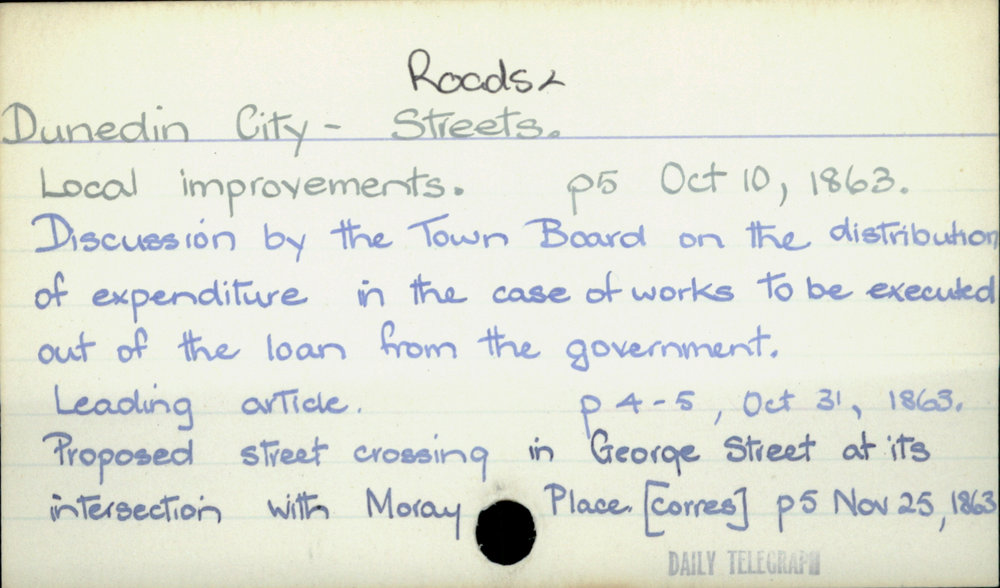 Roads <
Dunedin City - Streets.
Local improvements. p5 Oct 10, 1863.
Discussion by the Town Board on the distribution
of expenditure in the case of works to be executed
out of the loan from the government.
Leading article. p 4-5, Oct 31, 1863.
Proposed street crossing in George Street at its
intersection with Moray Place. [Corres] p5 Nov 25, 1863
DAILY TELEGRAPH